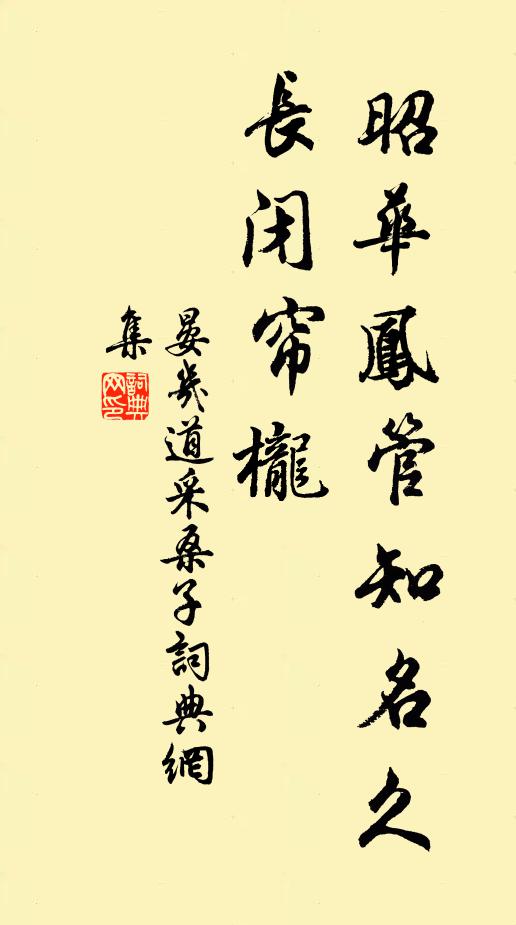 昭華鳳管知名久
長闭帘櫳
晏幾道采桑子詞典網
集
詞典
网印